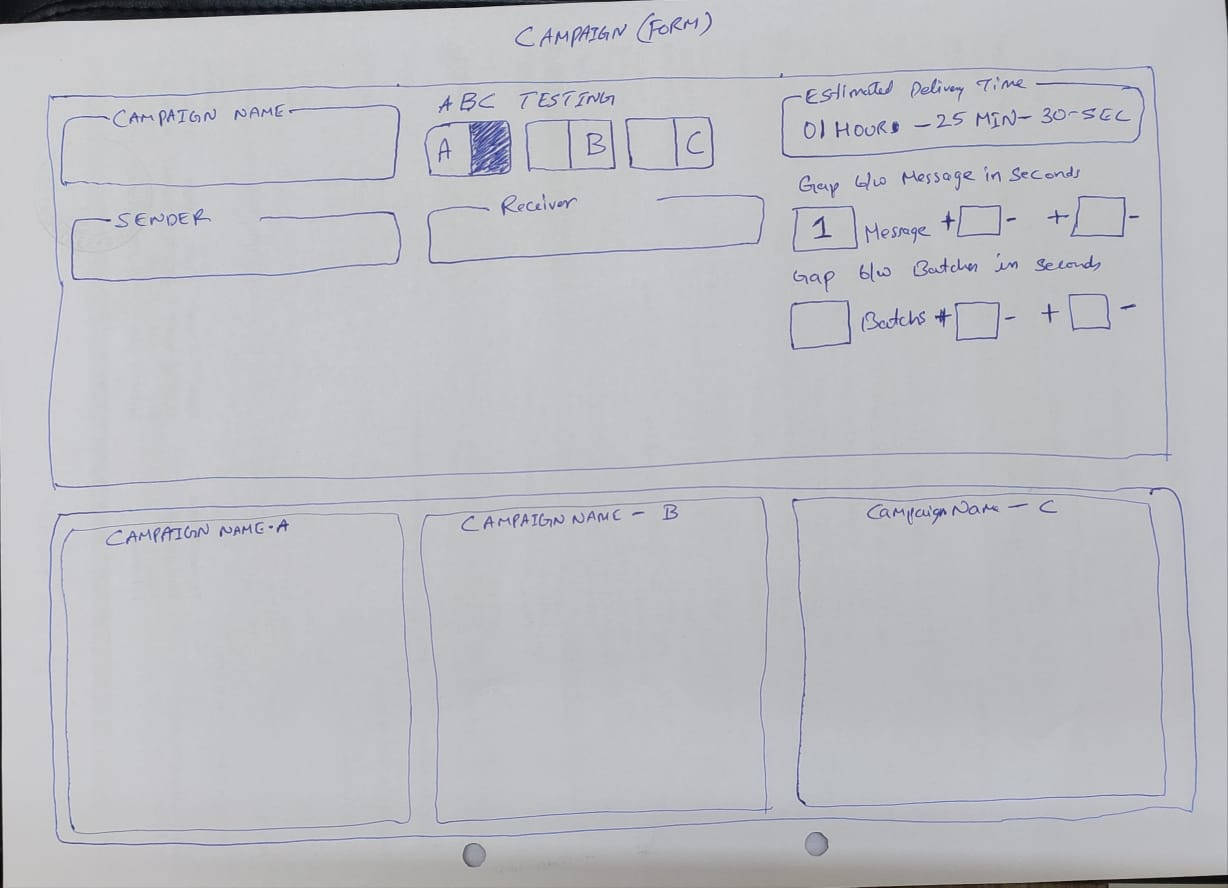 CAMPAIGN (FORM)
CAMPAIGN NAME
ABC TESTING
A
B
C
Estimated Delivery Time
01 HOUR - 25 MIN - 30-SEC
SENDER
Receiver
Gap b/w Message in Seconds
1 Message + - + -
Gap b/w Batches in Seconds
Batchs + - + -
CAMPAIGN NAME-A
CAMPAIGN NAME - B
Campaign Name - C